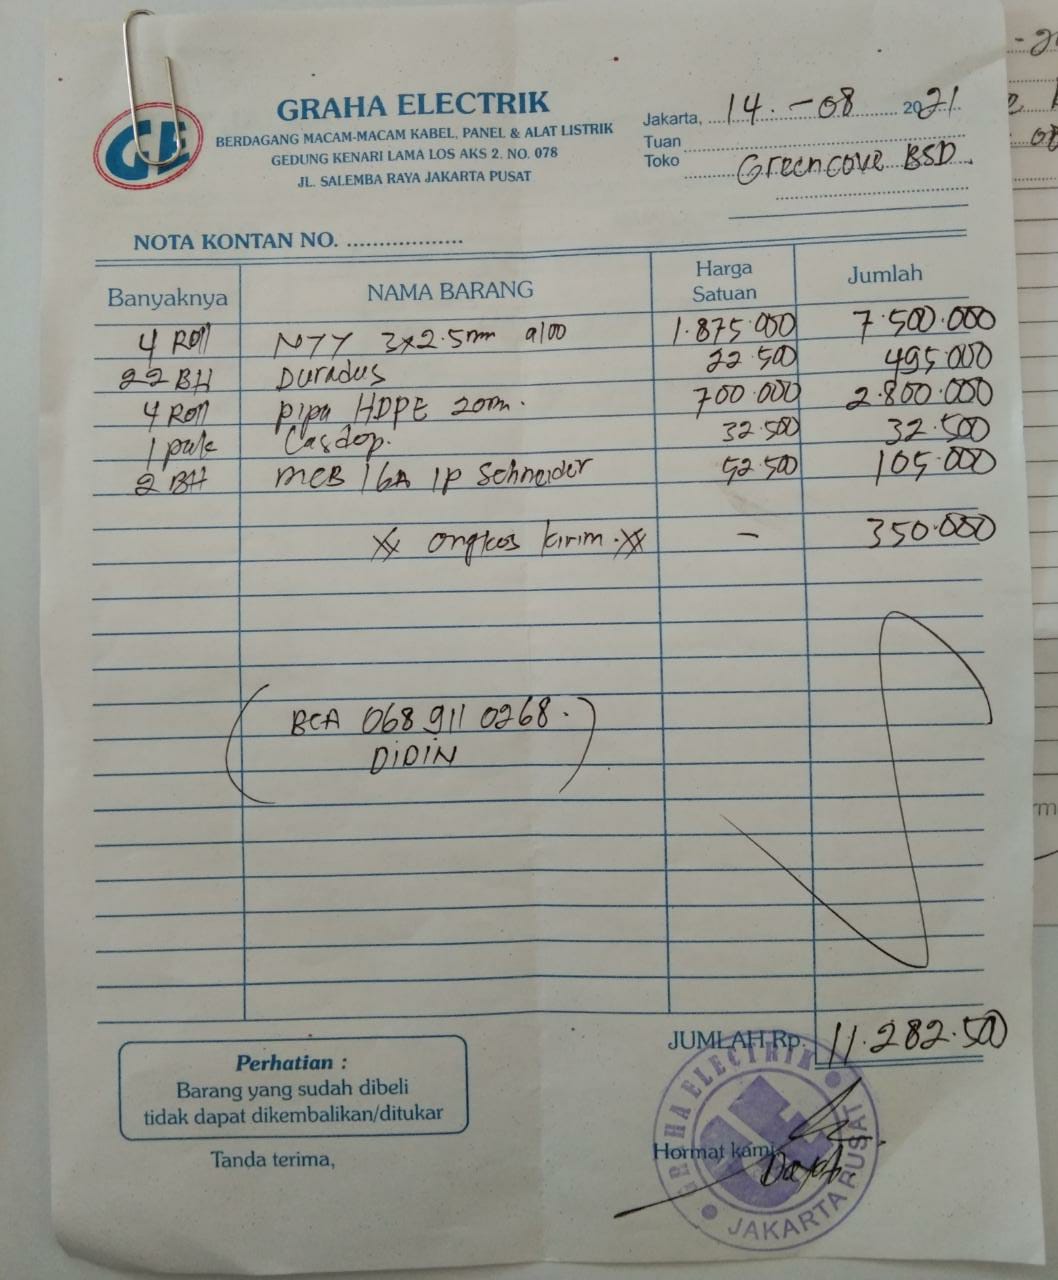 GE
GRAHA ELECTRIK
BERDAGANG MACAM-MACAM KABEL, PANEL & ALAT LISTRIK
GEDUNG KENARI LAMA LOS AKS 2. NO. 078
JL. SALEMBA RAYA JAKARTA PUSAT
Jakarta, 14 - 08 2021
Tuan
Toko Greencove BSD.
NOTA KONTAN NO.
Banyaknya NAMA BARANG Harga Satuan Jumlah
4 Roll NYY 3x2.5mm a100 1.875.000 7.500.000
22 BH Duradus 22.500 495.000
4 Roll Pipa HDPE 20m. 700.000 2.800.000
1 pak Casdop. 32.500 32.500
2 BH MCB 16A 1P Schneider 52.500 105.000
ongkos kirim. - 350.000
BCA 068 911 0268.
DIDIN
JUMLAH Rp. 11.282.500
Perhatian :
Barang yang sudah dibeli
tidak dapat dikembalikan/ditukar
Tanda terima,
Hormat kami
GRAHA ELECTRIK
JAKARTA PUSAT